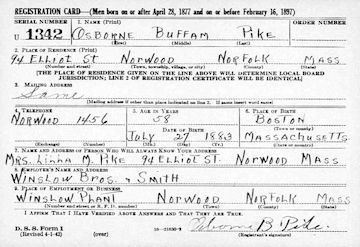 REGISTRATION CARD—(Men born on or after April 28, 1877 and on or before February 16, 1897)
SERIAL NUMBER 1. NAME (Print) ORDER NUMBER
U 1342 OSBORNE BUFFAM PIKE
(First) (Middle) (Last)
2. PLACE OF RESIDENCE (Print)
94 ELLIOT ST NORWOOD NORFOLK MASS
(Number and street) (Town, township, village, or city) (County) (State)
[THE PLACE OF RESIDENCE GIVEN ON THE LINE ABOVE WILL DETERMINE LOCAL BOARD
JURISDICTION; LINE 2 OF REGISTRATION CERTIFICATE WILL BE IDENTICAL]
3. MAILING ADDRESS
Same
[Mailing address if other than place indicated on line 2. If same insert word same]
4. TELEPHONE 5. AGE IN YEARS 6. PLACE OF BIRTH
NORWOOD 1456 58 BOSTON
DATE OF BIRTH (Town or county)
JULY 27 1883 MASSACHUSETTS
(Exchange) (Number) (Mo.) (Day) (Yr.) (State or country)
7. NAME AND ADDRESS OF PERSON WHO WILL ALWAYS KNOW YOUR ADDRESS
MRS. LINNA M. PIKE 94 ELLIOT ST. NORWOOD MASS
8. EMPLOYER'S NAME AND ADDRESS
WINSLOW BROS. & SMITH
9. PLACE OF EMPLOYMENT OR BUSINESS
WINSLOW PLANT NORWOOD NORFOLK MASS
(Number and street or R. F. D. number) (Town) (County) (State)
I AFFIRM THAT I HAVE VERIFIED ABOVE ANSWERS AND THAT THEY ARE TRUE.
D. S. S. Form 1
(Revised 4-1-42) (over) Osborne B. Pike
(Registrant's signature)